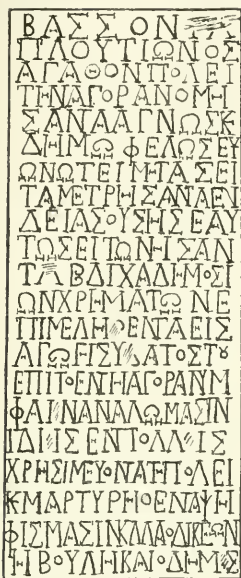 ΒΑΣΣΟΝ
ΠΛΟΥΤΙΩΝΟΣ
ΑΓΑΘΟΝΠΟΛΕΙ
ΤΗΝΑΓΟΡΑΝΟΜΗ
ΣΑΝΑΑΓΝΩΣΚ
ΔΗΜΩΦΕΛΩΣΕΥ
ΩΝΩΤΕΙΜΤΑΣΕΙ
ΤΑΜΕΤΡΗΣΑΝΑΕΝ
ΔΕΙΑΣΟΥΣΗΣΕΑΥ
ΤΩΣΕΙΤΩΝΗΣΑΝ
ΤΑΒΔΙΧΑΔΗΜΟΣΙ
ΩΝΧΡΗΜΑΤΩΝΕ
ΠΙΜΕΛΗΘΕΝΤΑΕΙΣ
ΕΠΙΤΟΕΝΤΗΑΓΟΡΑΝΥΜ
ΦΑΙΝΑΝΑΛΩΜΑΣΙΝ
ΧΡΗΣΙΜΕΥΟΝΑΤΗΠΟΛΕΙ
ΚΜΑΡΤΥΡΗΘΕΝΑΨΗ
ΦΙΣΜΑΣΙΝΚΛΑΟΔΙΚΕΩΝ
ΗΒΟΥΛΗΚΑΙΟΔΗΜΟΣ